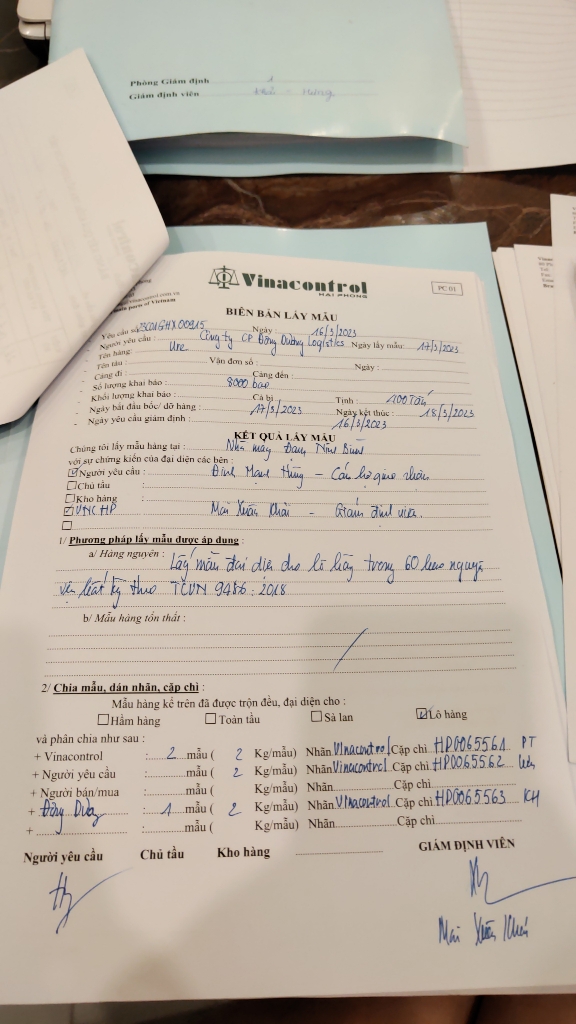 Phòng Giám định 1
Giám định viên
Vinacontrol
HAI PHONG
PC 01
BIÊN BẢN LẤY MẪU
Yêu cầu số Ngày : 16/3/2023
Người yêu cầu : Công ty CP Đông Dương Logistics Ngày lấy mẫu: 17/3/2023
Tên hàng: Ure
Tên tàu : Vận đơn số : Ngày :
Cảng đi : Cảng đến :
Số lượng khai báo : 8000 bao
Khối lượng khai báo : Cả bì Tịnh :
Ngày bắt đầu bốc/ dỡ hàng : 17/3/2023 Ngày kết thúc : 18/3/2023
Ngày yêu cầu giám định : 16/3/2023
KẾT QUẢ LẤY MẪU
Chúng tôi lấy mẫu hàng tại : Nhà máy Đạm Ninh Bình
với sự chứng kiến của đại diện các bên :
Người yêu cầu : Đinh Mạnh Hùng - Cán bộ giao nhận
Chủ tàu :
Kho hàng :
VNCHP Mai Xuân Khải - Giám định viên.
1/ Phương pháp lấy mẫu được áp dụng :
a/ Hàng nguyên : Lấy mẫu đại diện cho lô hàng trong 60 bao nguyên
vẹn bất kỳ theo TCVN 9486 : 2018
b/ Mẫu hàng tổn thất :
2/ Chia mẫu, dán nhãn, cặp chì :
Mẫu hàng kể trên đã được trộn đều, đại diện cho :
Hầm hàng Toàn tàu Sà lan Lô hàng
và phân chia như sau :
+ Vinacontrol : 2 mẫu ( 2 Kg/mẫu) Nhãn Vinacontrol Cặp chì HP0065561 PT
+ Người yêu cầu : mẫu ( 2 Kg/mẫu) Nhãn Vinacontrol Cặp chì HP0065562 Lưu
+ Người bán/mua : mẫu ( Kg/mẫu) Nhãn Cặp chì
+ Đông Dương : 1 mẫu ( 2 Kg/mẫu) Nhãn Vinacontrol Cặp chì HP0065563 KH
+ : mẫu ( Kg/mẫu) Nhãn Cặp chì
Người yêu cầu Chủ tàu Kho hàng GIÁM ĐỊNH VIÊN
Mai Xuân Khải